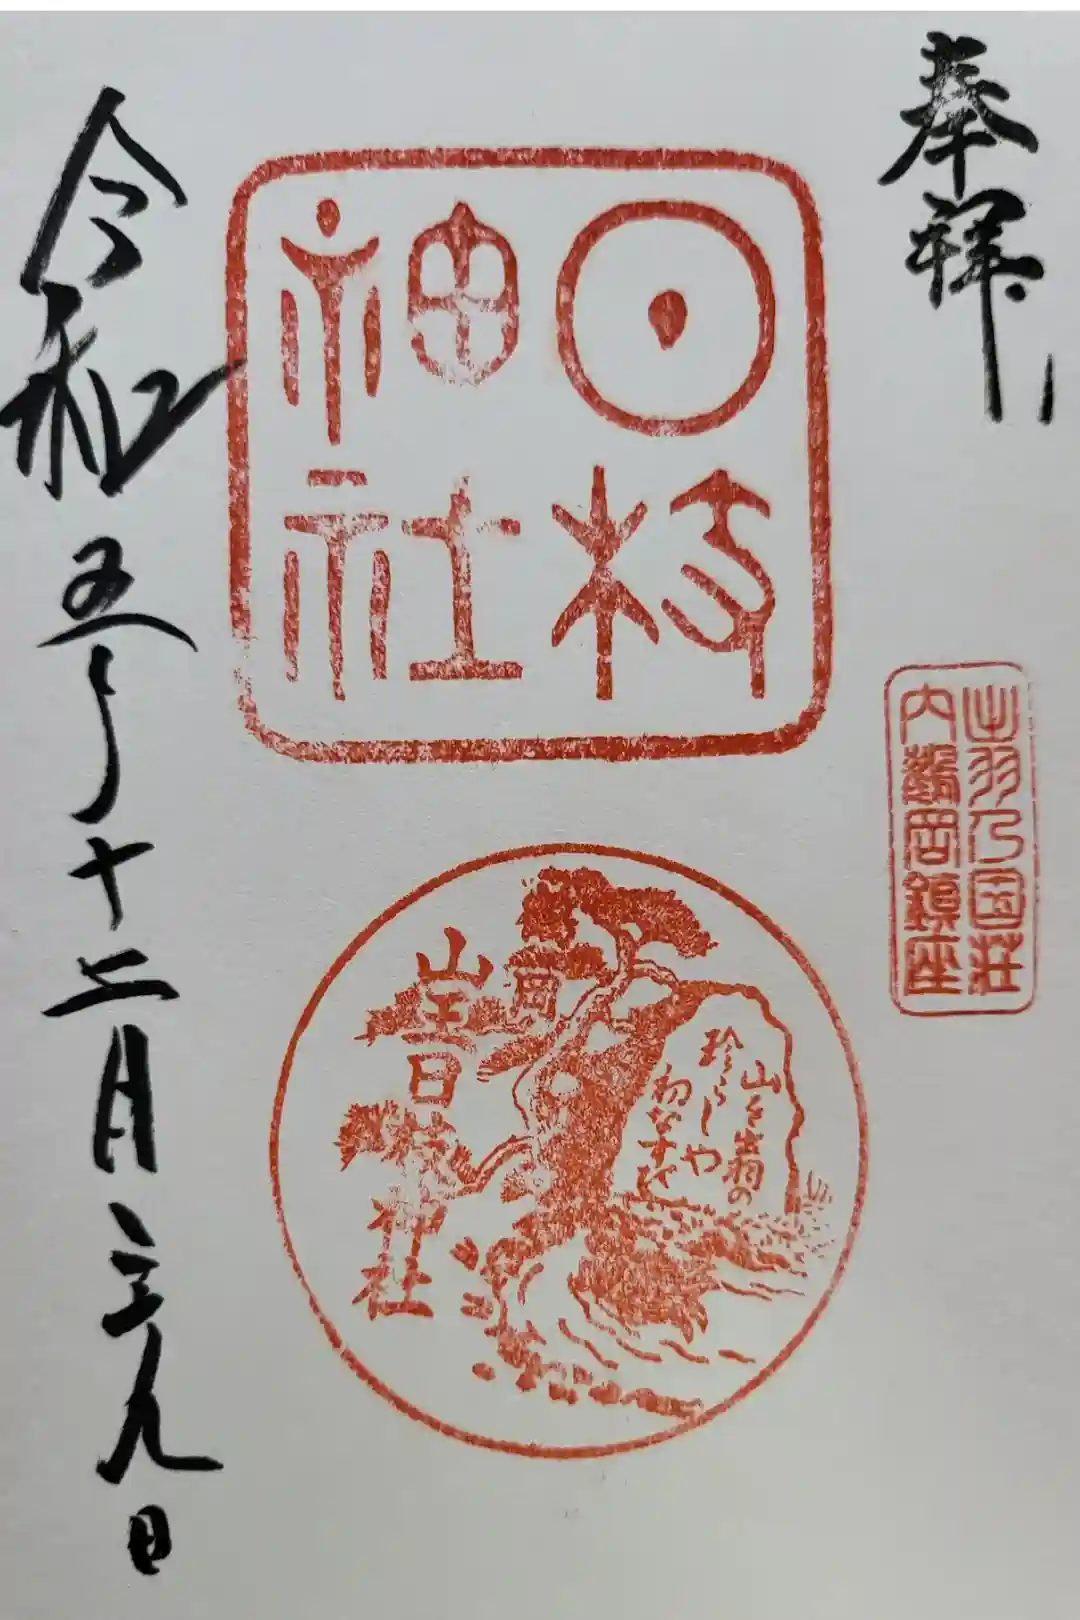 奉拝
出羽乃国荘
内鶴岡鎮座
日枝
神社
珍らしや
山を出羽の
初なすび
山王日枝神社
令和五年十二月二十九日